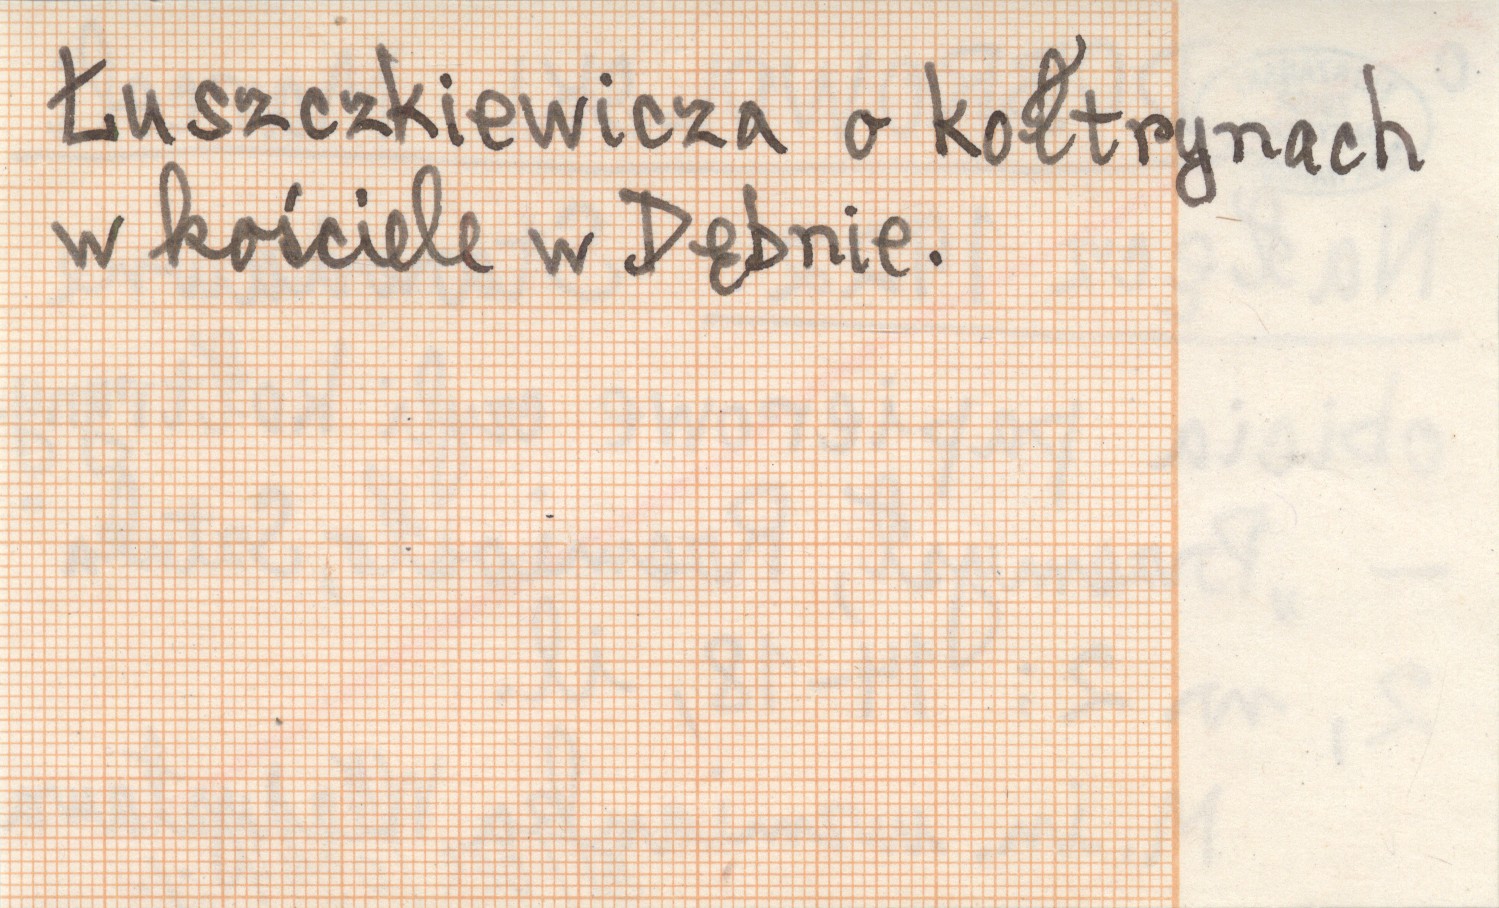 Łuszczkiewicza o kołtrynach
w kościele w Dębnie.